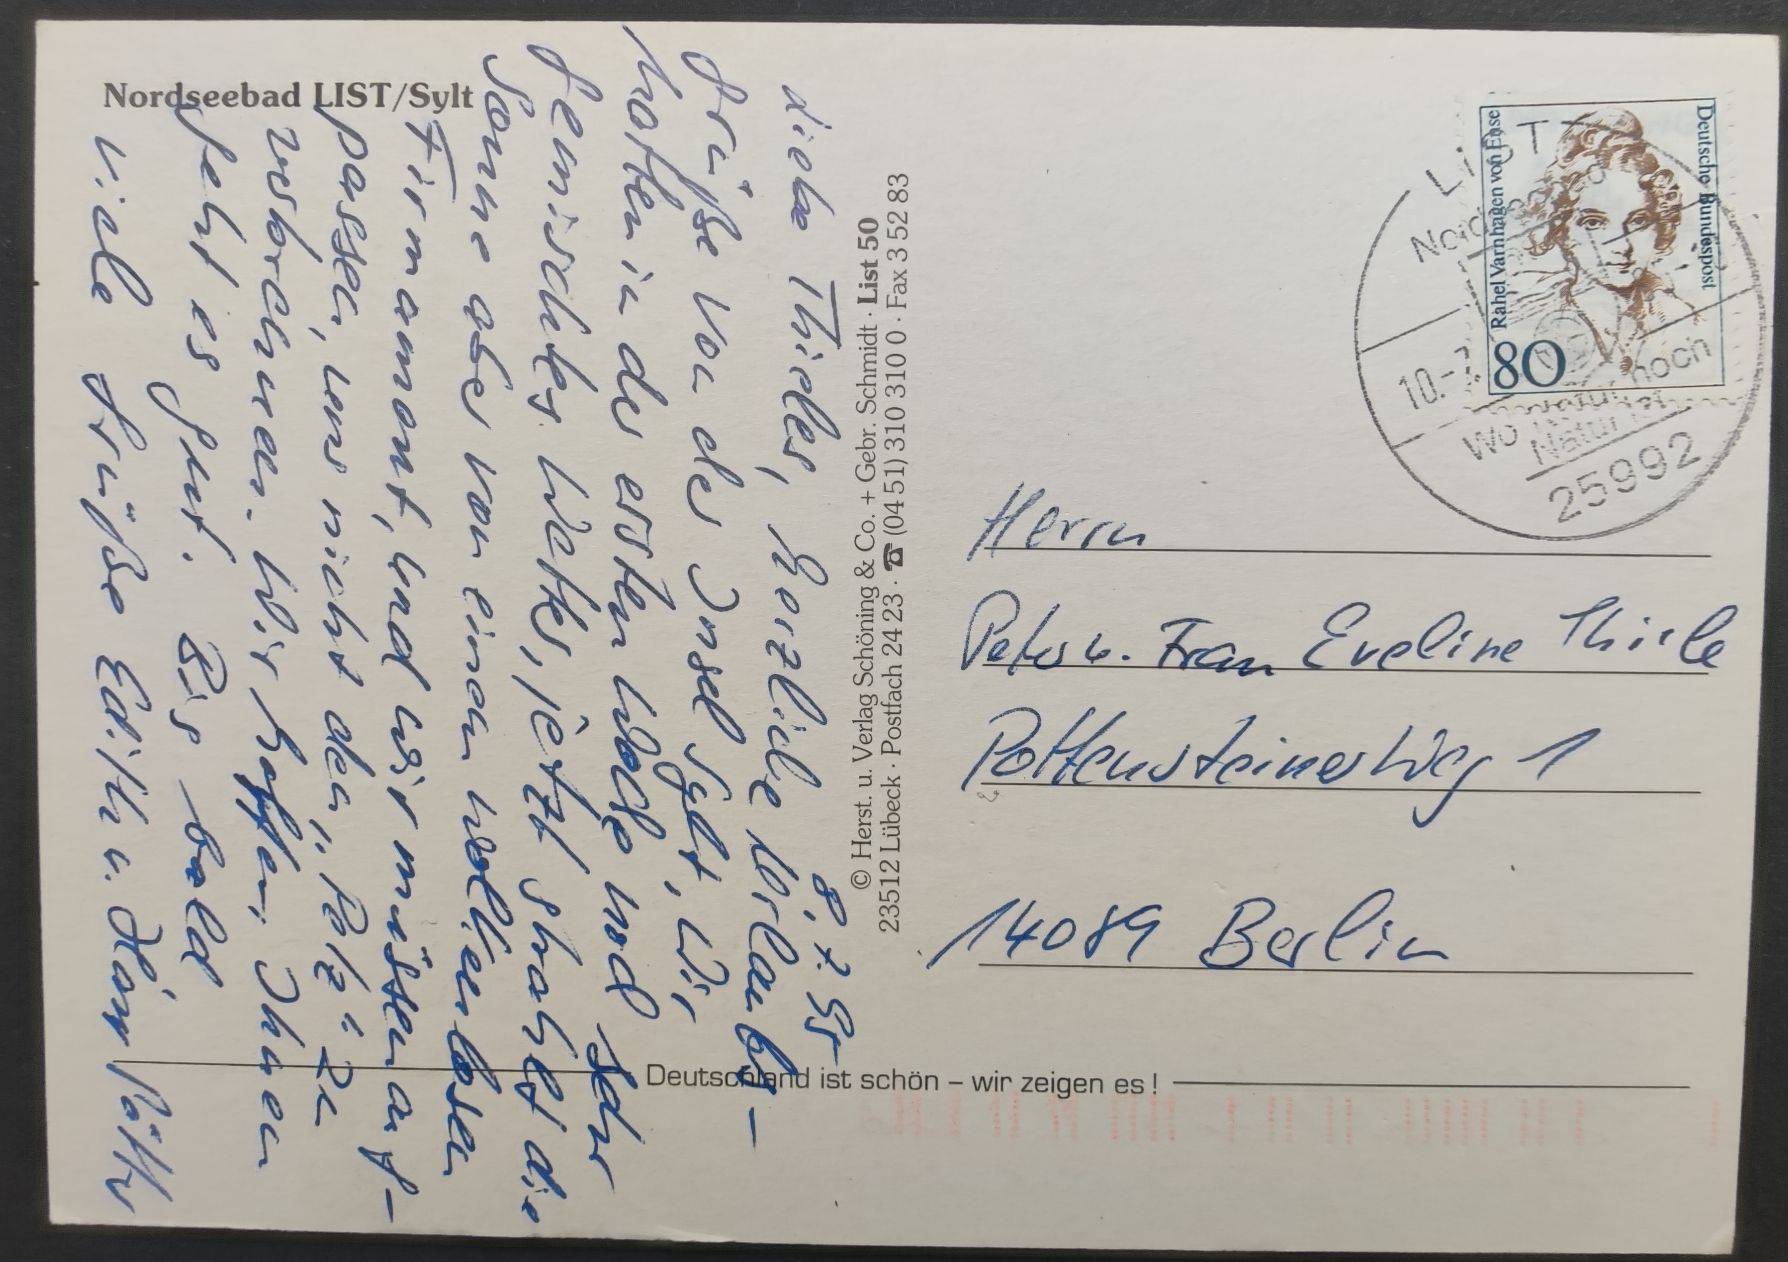 Nordseebad LIST/Sylt
8.7.95
Liebe Thieles, herzliche Urlaubs-
grüße von der Insel Sylt, Wir
hatten in der ersten Woche noch sehr
gemischtes Wetter, jetzt strahlt die
Sonne aber von einem wolkenlosen
Firmament, und wir müssen auf-
passen, uns nicht den „Pelz“ zu
verbrennen. Wir hoffen, Ihnen
geht es gut. Bis bald
viele Grüße Edith u.
© Herst. u. Verlag Schöning & Co. + Gebr. Schmidt · List 50
23512 Lübeck · Postfach 24 23 · ☎ (04 51) 310 310 0 · Fax 3 52 83
Deutsche Bundespost
Rahel Varnhagen von Ense
80
LIST
10.-7
Wo Natur noch
Natur ist
25992
Herrn
Peter u. Frau Eveline Thiele
Pottensteiner Weg 1
14089 Berlin
Deutschland ist schön – wir zeigen es !